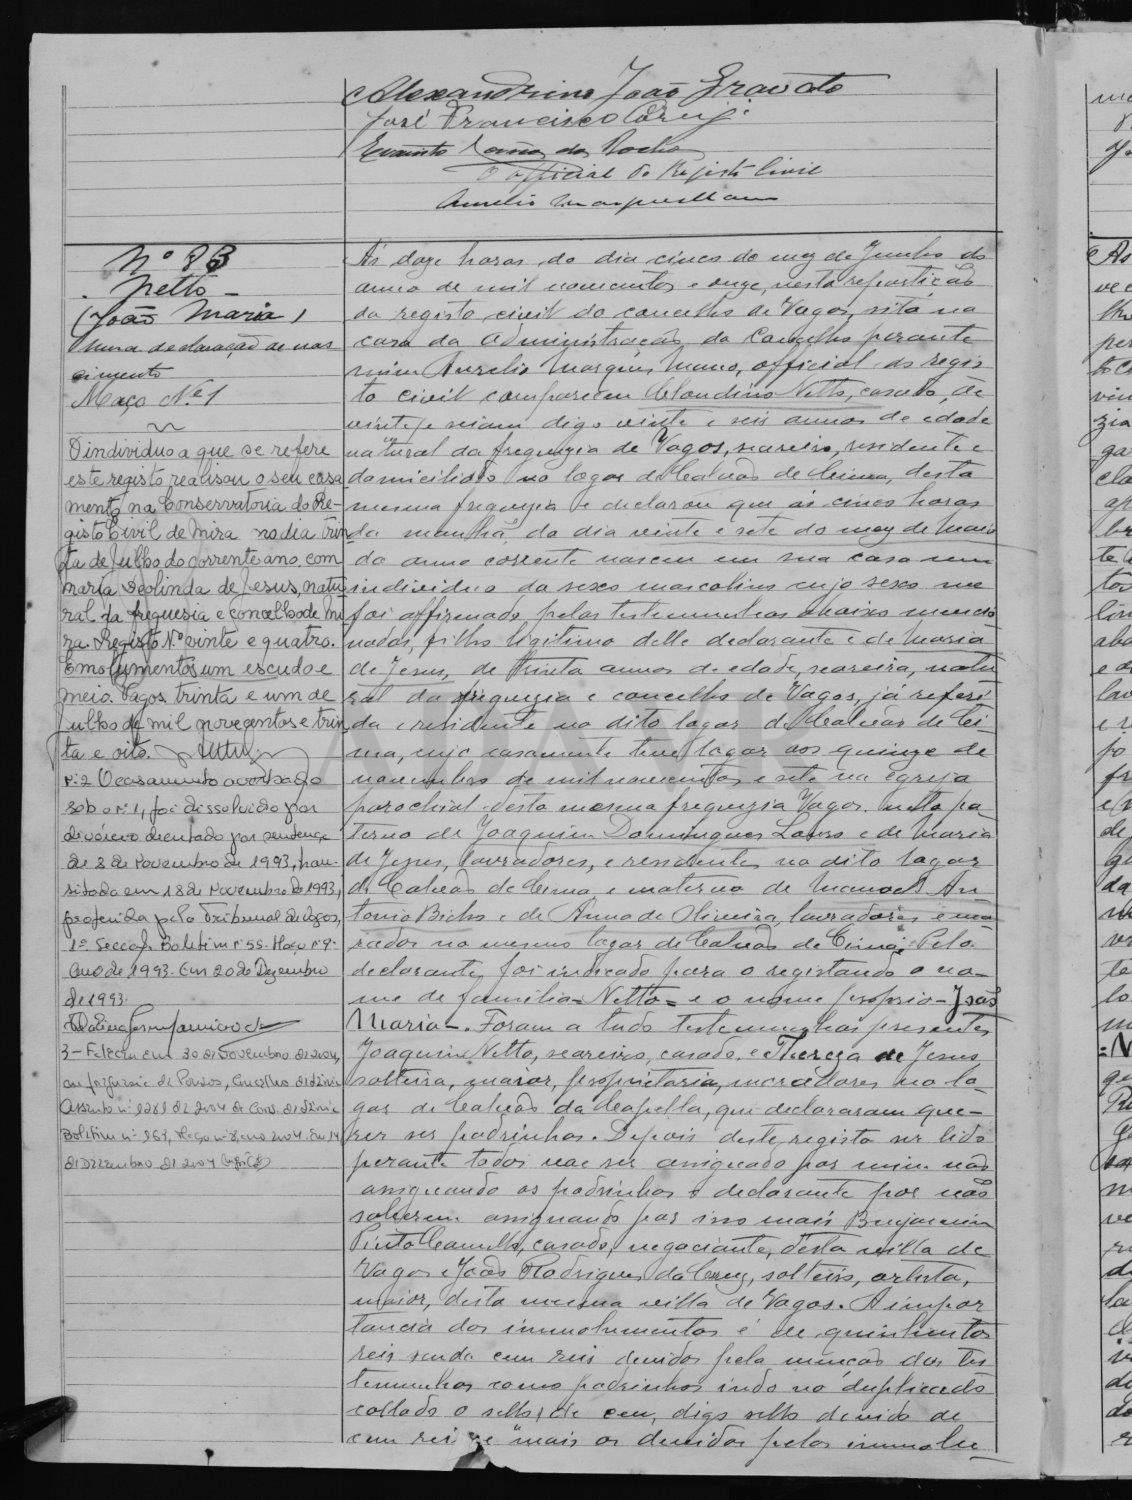 Alexandrino João Gravato
José Francisco Cruz
Evaristo da Rocha
O official do Registo Civil
Aurelio Marques Mano
Nº 83
Netto
(João Maria)
Uma declaração de nas
cimento
Maço Nº 1
O individuo a que se refere
este registo realisou o seu casa
mento na Conservatoria do Re-
gisto Civil de Mira no dia trin
ta de Julho do corrente ano, com
Maria Deolinda de Jesus, natu
ral da freguesia e concelho de Mi
ra. Registo N.º vinte e quatro.
Emolumentos um escudo e
meio. Vagos, trinta e um de
Julho de mil novecentos e trin
ta e oito.
nº 2 O casamento averbado
sob o nº 1, foi dissolvido por
divórcio decretado por sentença
de 8 de Novembro de 1993, tran-
sitada em 18 de Novembro de 1993,
proferida pelo Tribunal de Vagos,
1ª Secção. Boletim nº 55. Maço nº 9.
Ano de 1993. Em 20 de Dezembro
de 1993.
3 - Faleceu em 30 de Novembro de 2004,
na freguesia de Pousos, Concelho de Leiria
Assento nº de 2004 da Cons. de Leiria
Boletim nº 263, Maço nº ano 2004. Em 14
de Dezembro de 2004
Ás doze horas do dia cinco do mez de Junho do
anno de mil novecentos e onze, nesta repartição
do registo civil do concelho de Vagos, sita na
casa da Administração do Concelho perante
mim Aurelio Marques Mano, official do regis
to civil compareceu Claudino Netto, casado, de
vinte e digo vinte e seis annos de edade
natural da freguezia de Vagos, seareiro, residente e
domiciliado no logar de Calvão de Cima, desta
mesma freguezia e declarou que ás cinco horas
da manhã do dia vinte e sete do mez de Maio
do anno corrente nasceu em sua casa um
individuo do sexo masculino cujo sexo me
foi affirmado pelas testemunhas abaixo mencio
nadas, filho legitimo delle declarante e de Maria
de Jesus, de trinta annos de edade, seareira, natu
ral da freguezia e concelho de Vagos, já referi
da e residente no dito logar de Calvão de Ci-
ma, cujo casamento teve logar aos quinze de
novembro de mil novecentos e sete na egreja
parochial desta mesma freguezia Vagos. Netto pa
terno de Joaquim Domingues Louro e de Maria
de Jesus, lavradores, e residentes no dito logar
de Calvão de Cima e materno de Manoel An
tonio Bicho e de Anna de Oliveira, lavradores e mo
rados no mesmo logar de Calvão de Cima. Pelo
declarante, foi indicado para o registando o no-
me de familia = Netto = e o nome proprio - João
Maria -. Foram a tudo testemunhas presentes
Joaquim Netto, seareiro, casado, e Thereza de Jesus
solteira, maior, proprietaria, moradores no lo-
gar de Calvão da Capella, que declararam que-
rer ser padrinhos. Depois deste registo ser lido
perante todos vae ser assignado por mim não
assignando os padrinhos e declarante por não
saberem assignando por isso mais Benjamim
Pinto Camello, casado, negociante, desta villa de
Vagos e João Rodrigues da Cruz, solteiro, artista,
maior, desta mesma villa de Vagos. A impor
tancia dos immolumentos é de quinhentos
reis sendo cem reis devidos pela menção das tes
temunhas como padrinhos indo no duplicado
collado o sello de cem, digo sello devido de
cem reis e mais os devidos pelos immolu